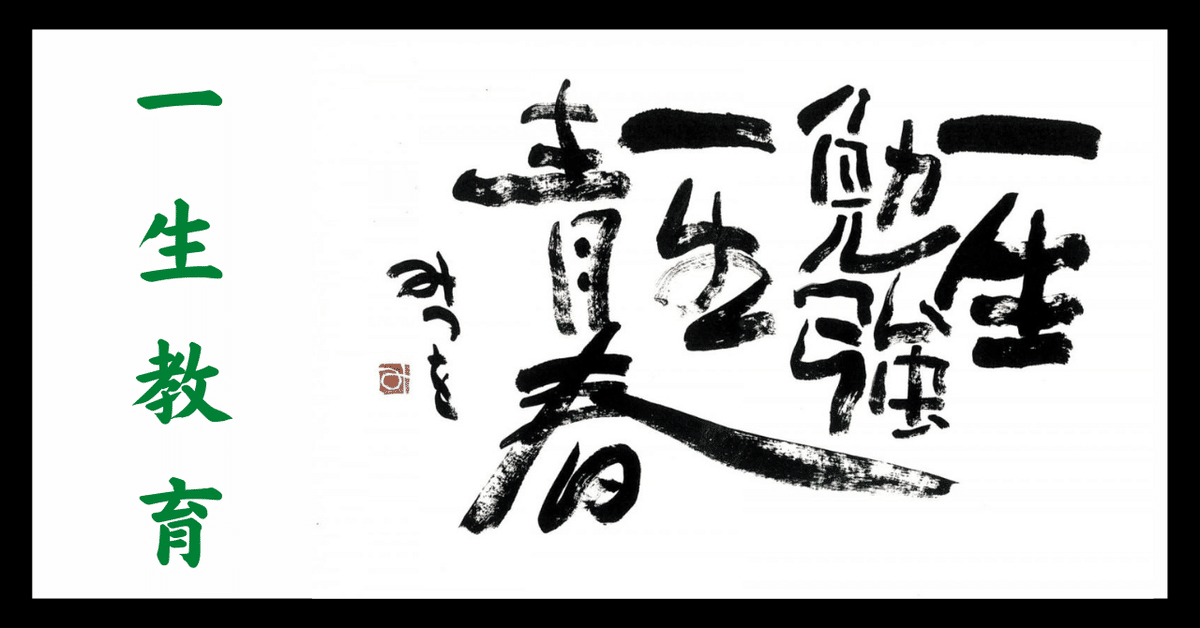 一生
勉強
一生
青春
みつを
一生教育